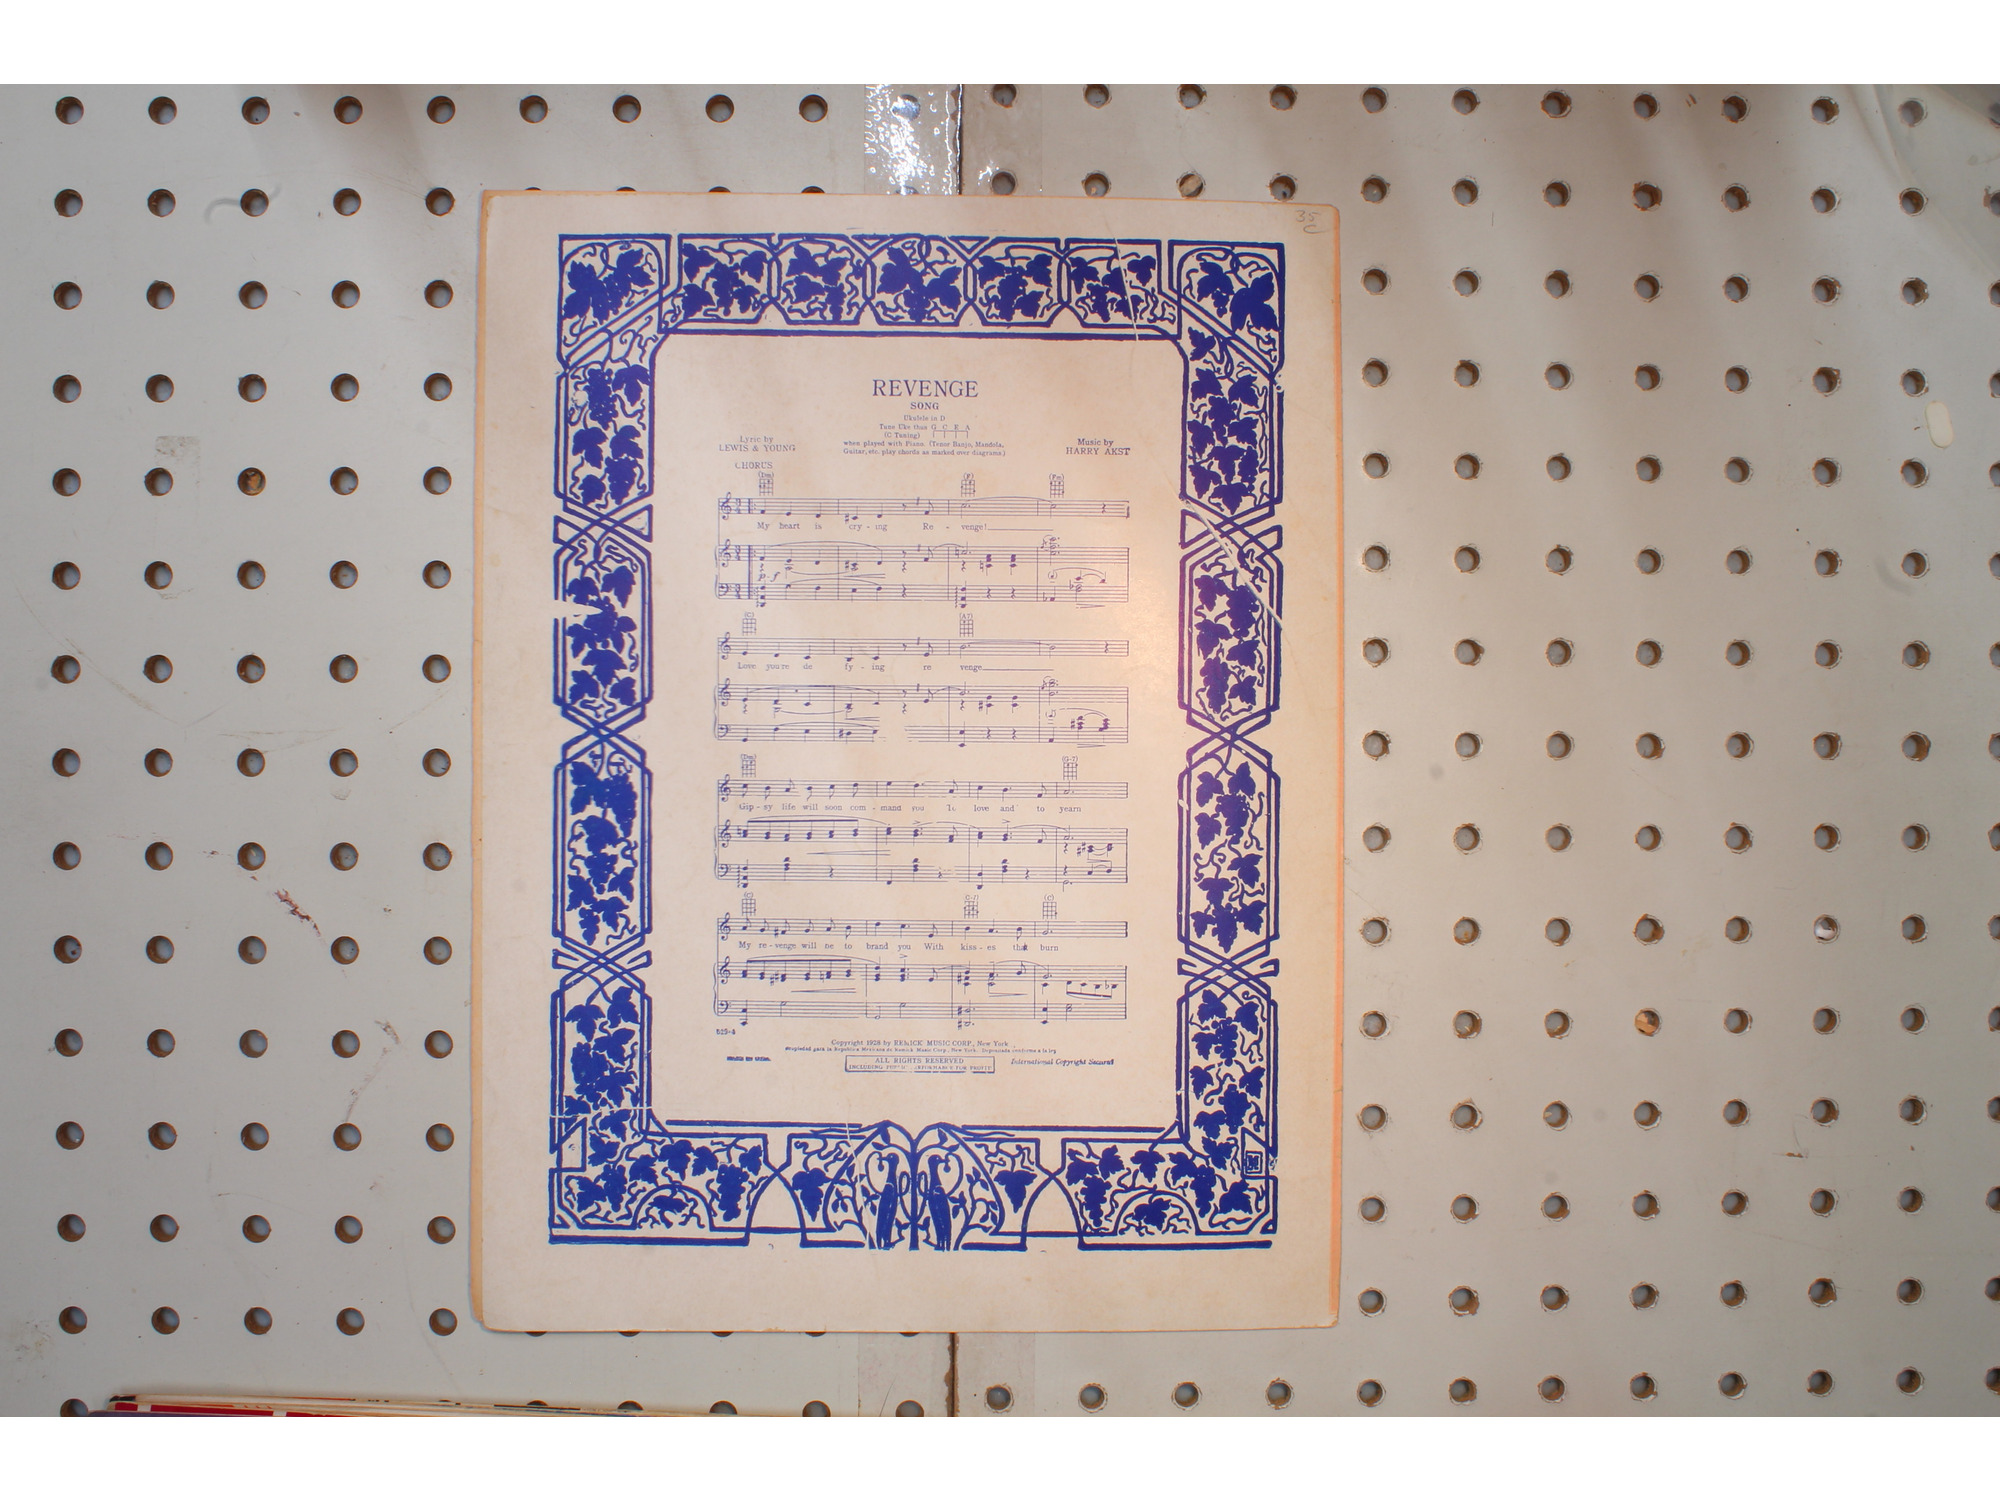 35
REVENGE
SONG
Ukulele in D
Tune Uke thus G C E A
(C Tuning)
when played with Piano. (Tenor Banjo, Mandola,
Guitar, etc. play chords as marked over diagrams.)
Lyric by
LEWIS & YOUNG
Music by
HARRY AKST
CHORUS
(Dm) (F) (Fm)
My heart is cry - ing Re - venge!
p-f
(C) (A7)
Love you're de fy - ing re venge
(Dm) (G-7)
Gip - sy life will soon com - mand you To love and to yearn
(C) (C)
My re - venge will be to brand you With kiss - es that burn
Copyright 1928 by REMICK MUSIC CORP., New York
para la Republica Mexicana de Remick Music Corp., New York. Depositada conforme a la ley
ALL RIGHTS RESERVED
INCLUDING FOR PROFIT
International Copyright Secured